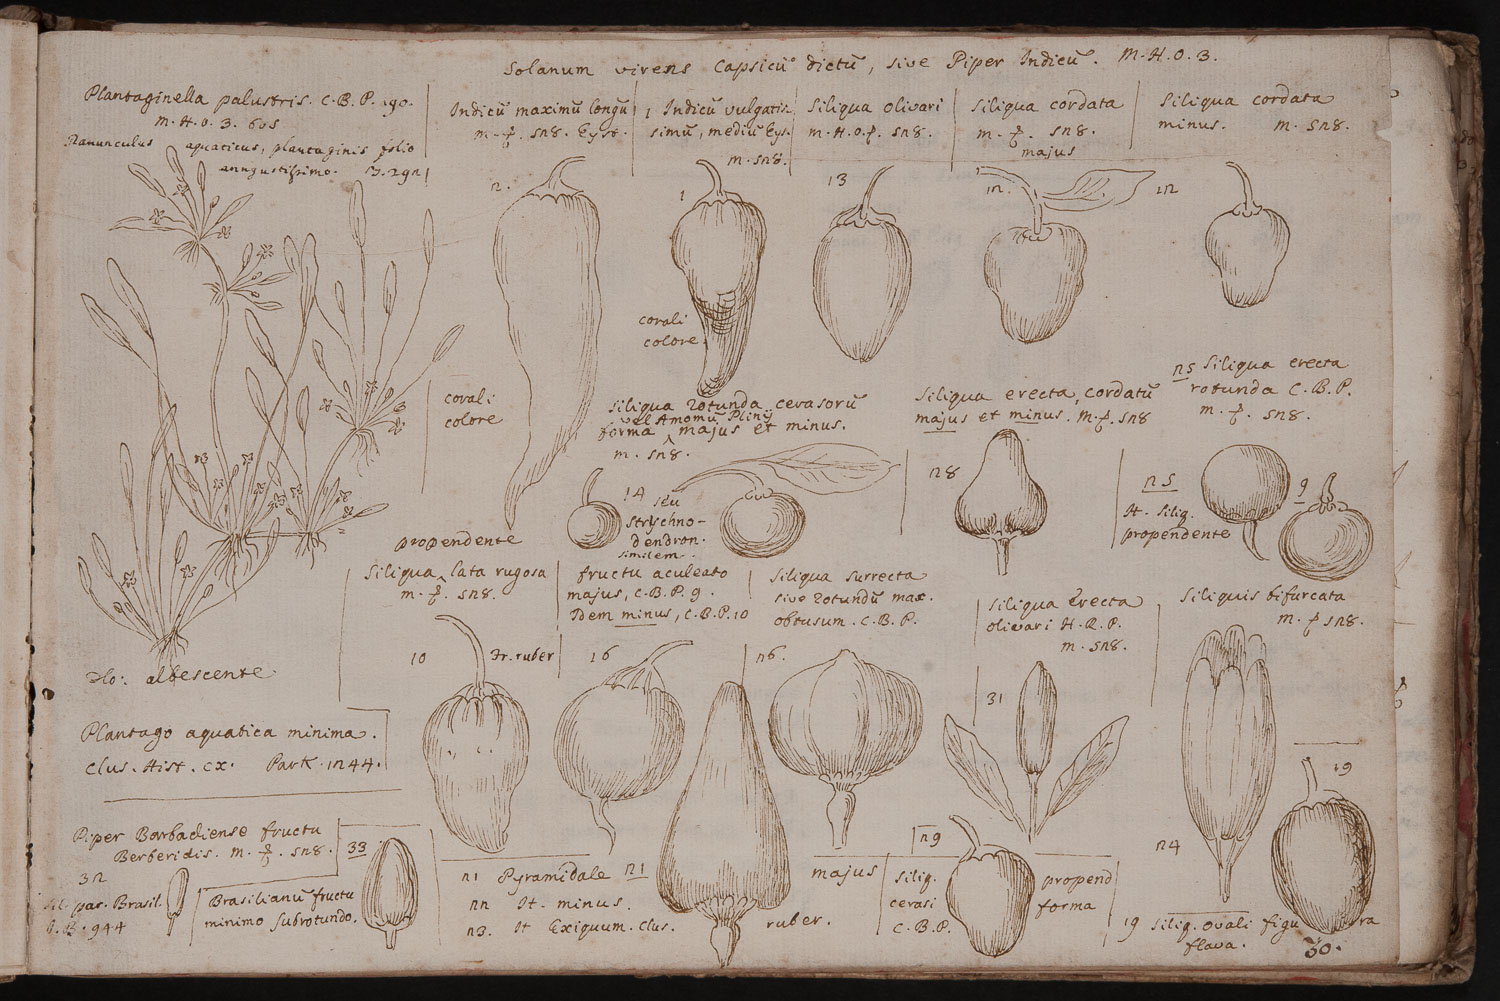 Solanum virens Capsicũ dictũ, sive Piper Indicũ. M.H.O.3.
Plantaginella palustris. C.B.P. 190.
M.H.O.3. 605
Ranunculus aquaticus, plantaginis folio
anngustissimo. J. 291
Indicũ maximũ longũ
m. sn8. Eyst.
1 Indicũ vulgatis
simũ, mediũ Eys.
m. sn8.
Siliqua olivari
m.H.O. sn8.
Siliqua cordata
m. sn8.
majus
Siliqua cordata
minus. m. sn8.
n.
1
13
1n.
1n
corali
colore.
corali
colore
Siliqua rotunda cerasorũ
vel Amomũ Plinij
forma majus et minus.
m. sn8.
Siliqua erecta cordatũ
majus et minus. m. sn8
n5 Siliqua erecta
rotunda C.B.P.
m. sn8.
14
seu
Strychno-
dendron.
similem
n8
n5
It. Siliq.
propendente
9
propendente
Siliqua lata rugosa
m. sn8.
fructu aculeato
majus, C.B.P. 9.
Idem minus, C.B.P. 10
Siliqua surrecta
sive rotundũ max.
obtusum. C.B.P.
Siliqua Erecta
olivari H.R.P.
m. sn8.
Siliquis bifurcata
m. sn8.
10
Fr. ruber
16
n6.
31
19
Flo: albescente
Plantago aquatica minima.
Clus. Hist. cx. Park. 1n44.
Piper Barbadiense fructu
Berberidis. m. sn8.
33
3n
par. Brasil.
J.B. 944
Brasilianũ fructu
minimo subrotundo.
n1 Pyramidale n1
nn It. minus.
n3. It Exiguum. Clus.
majus
ruber.
n9
siliq.
cerasi
C.B.P.
propend
forma
n4
19 Siliq. ovali figu ra
flava.
30.